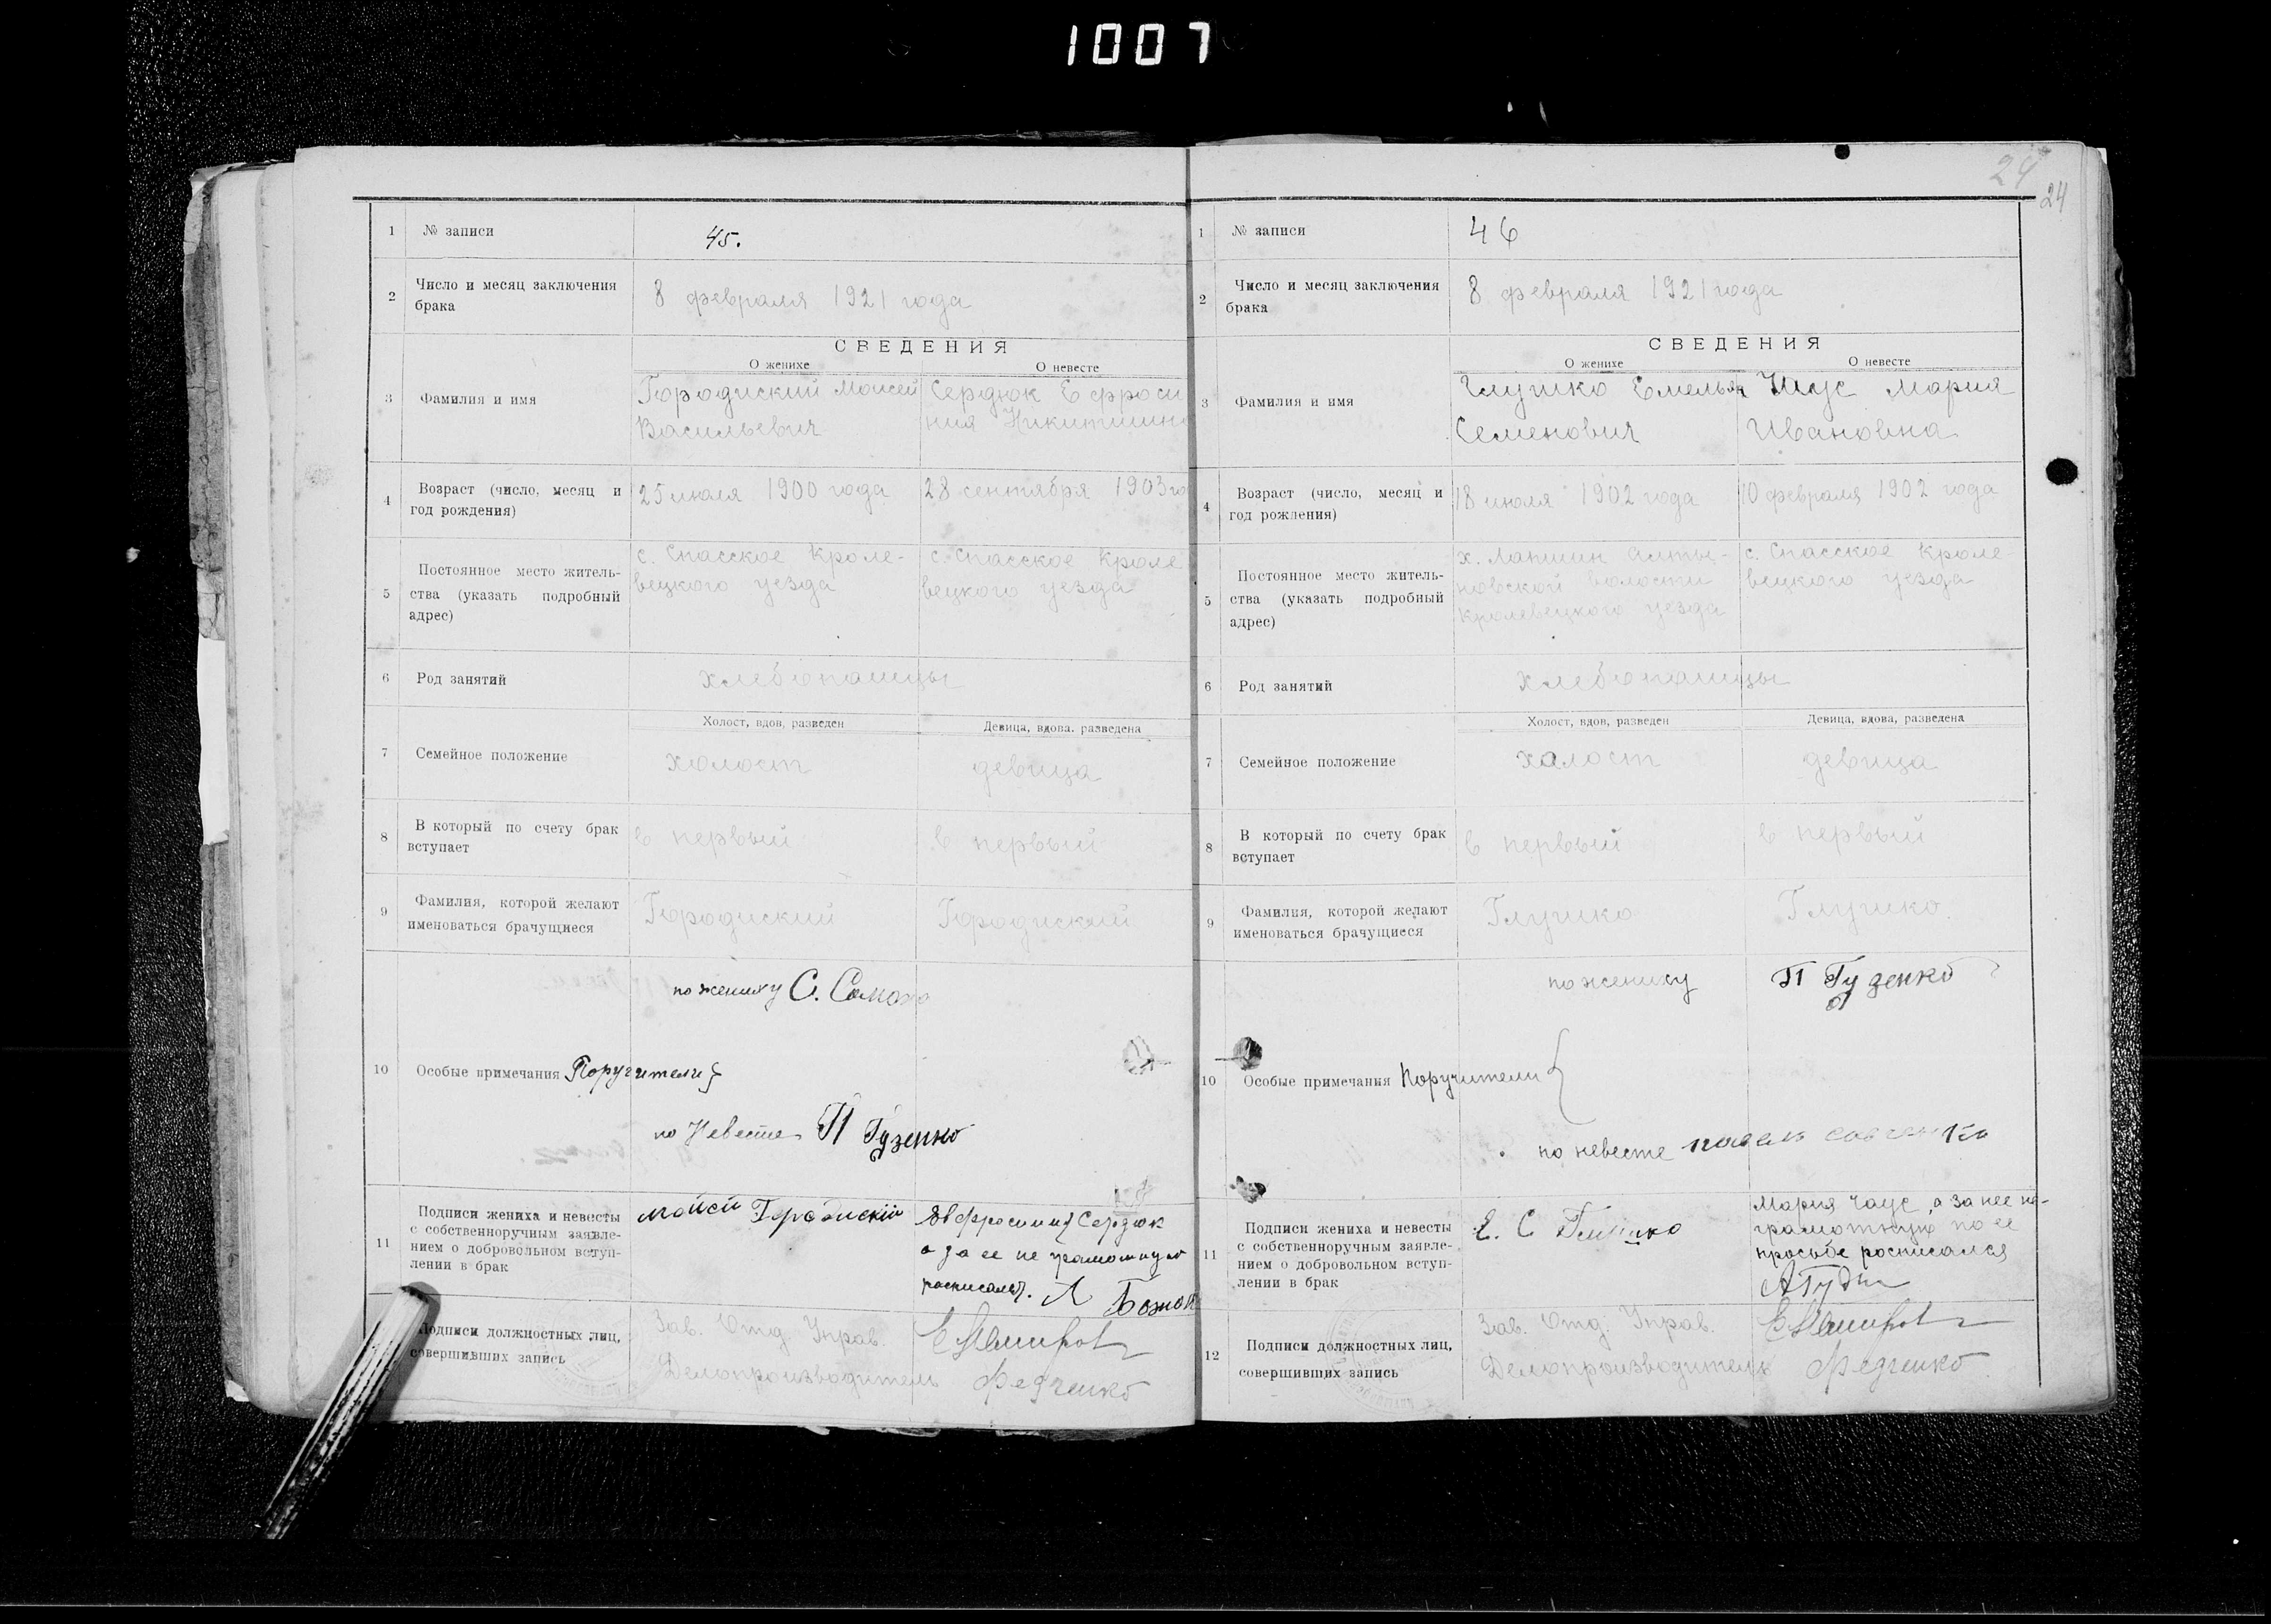 1007
24
24
1 № записи 45.
2 Число и месяц заключения
брака
8 февраля 1921 года
СВЕДЕНИЯ
О женихе О невесте
3 Фамилия и имя
Городиский Моисей
Васильевич
Сердюк Ефроси
ния Никитишн
4 Возраст (число, месяц и
год рождения)
25 июля 1900 года
28 сентября 1903 го
5 Постоянное место житель-
ства (указать подробный
адрес)
с. Спасское Кроле-
вецкого уезда
с. Спасское Кроле
вецкого уезда
6 Род занятий
хлебопашцы
Холост, вдов, разведен Девица, вдова. разведена
7 Семейное положение
холост девица
8 В который по счету брак
вступает
в первый в первый
9 Фамилия, которой желают
именоваться брачущиеся
Городиский Городиский
по жениху С.
10 Особые примечания Поручители
по Невесте П Гузенко
11 Подписи жениха и невесты
с собственноручным заявле-
нием о добровольном вступ-
лении в брак
Мойсей Городискій
Евфросиния Сердюк
а за ее не грамотную
росписалс. Л
Подписи должностных лиц,
совершивших запись
Зав. Отд. Управ.
Делопроизводитель Федченко
1 № записи 46
2 Число и месяц заключения
брака
8 февраля 1921 года
СВЕДЕНИЯ
О женихе О невесте
3 Фамилия и имя
Глушко Емельян
Семенович
Чаус Мария
Ивановна
4 Возраст (число, месяц и
год рождения)
18 июля 1902 года
10 февраля 1902 года
5 Постоянное место житель-
ства (указать подробный
адрес)
х. Лапшин Алты-
новской волости
Кролевецкого уезда
с. Спасское Кроле
вецкого уезда
6 Род занятий
хлебопашцы
Холост, вдов, разведен Девица, вдова, разведена
7 Семейное положение
холост девица
8 В который по счету брак
вступает
в первый в первый
9 Фамилия, которой желают
именоваться брачущиеся
Глушко Глушко
по жениху П Гузенко
10 Особые примечания Поручители
по невесте павел савченко
11 Подписи жениха и невесты
с собственноручным заявле-
нием о добровольном вступ-
лении в брак
Е. С Глушко
Мария Чаус, а за нее не-
грамотную по ее
просьбе росписался
12 Подписи должностных лиц,
совершивших запись
Зав. Отд. Управ.
Делопроизводитель Федченко